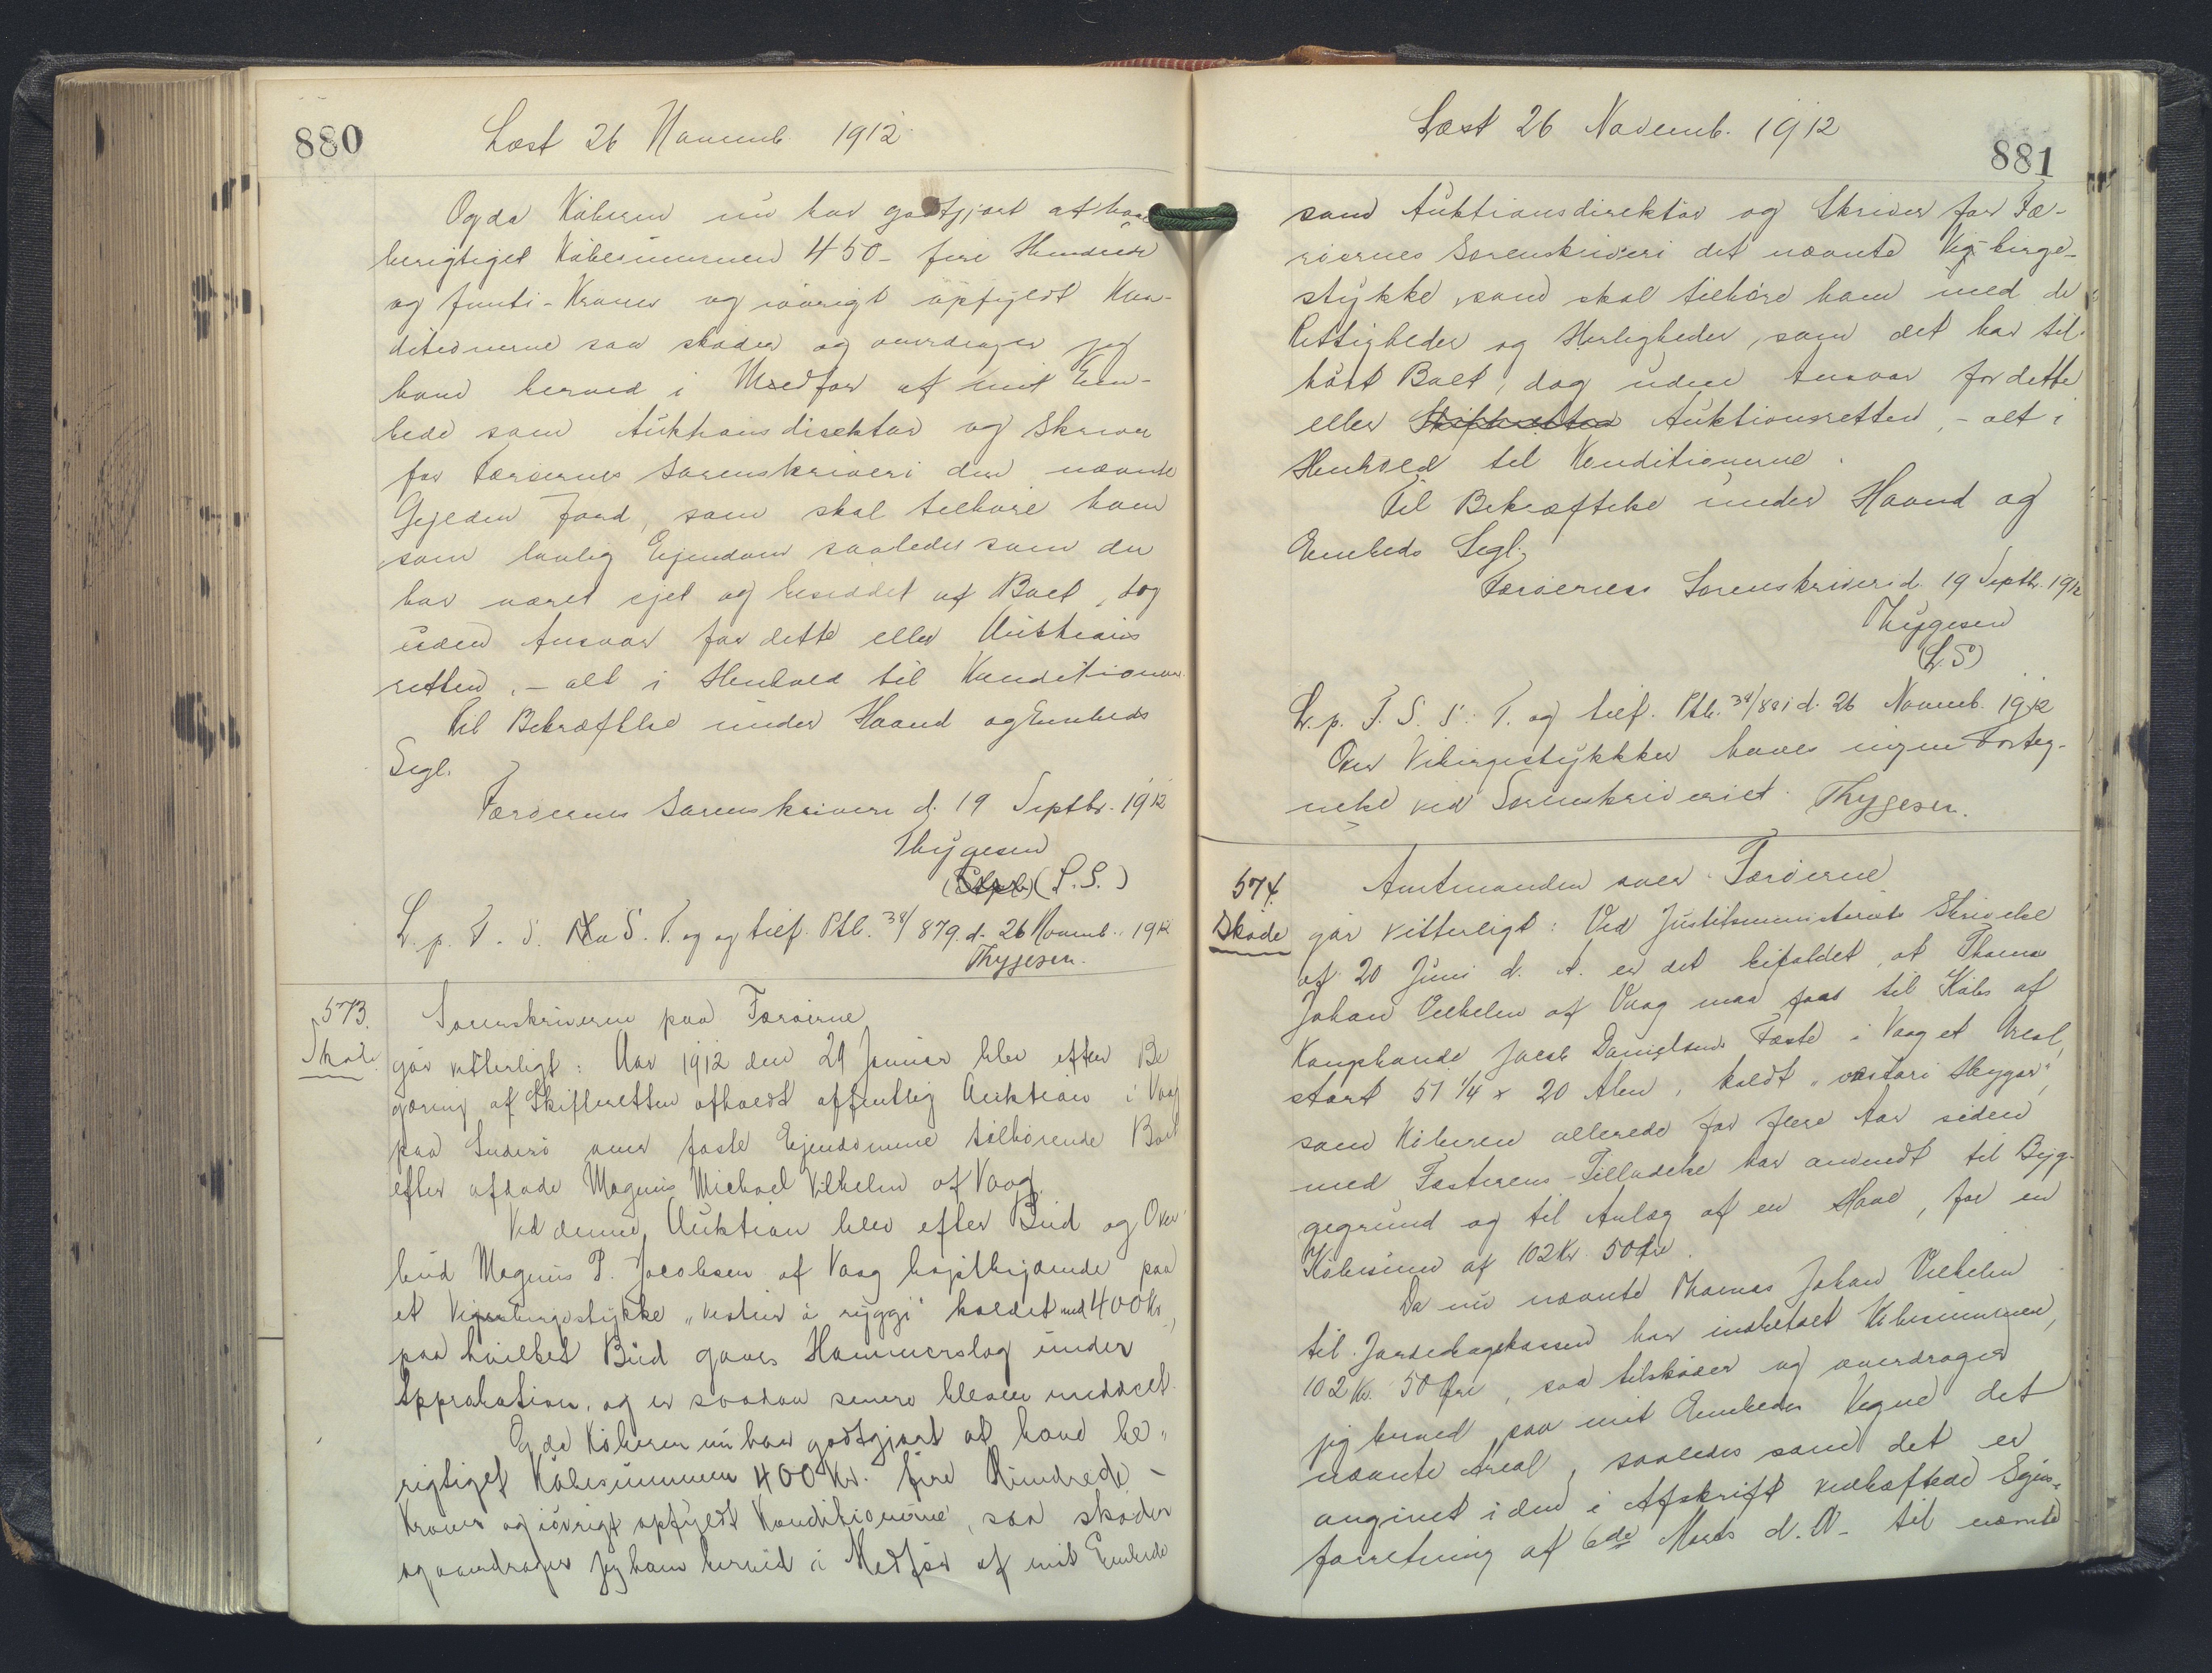 880
Læst 26 Novemb. 1912
Og da Köberen nu har godtgjort at have
berigtiget Köbesummen 450 - fire Hundrede
og femti - Kroner og iövrigt opfyldt Kon-
ditionerne saa skøder og overdrager jeg
ham herved i Medfør af mit Em-
bede som Auktionsdirektör og Skriver
for Færöernes Sorenskriveri den nævnte
Gjelden Jord, som skal tilhöre ham
som lovlig Ejendom saaledes som den
har været ejet og besiddet af Boet, dog
uden Ansvar for dette eller Auktions
retten, - alt i Henhold til Konditionerne.
Til Bekræftelse under Haand og Embeds
Segl.
Færöernes Sorenskriveri d. 19 Septbr. 1912
Thygesen
(L.S.)
L. p. F. S. S. T. og og tilf. Ptb. 38/879. d. 26 Novemb. 1912
Thygesen.
573.
Sköde
Sorenskriveren paa Færöerne
gör vitterligt: Aar 1912 den 29 Januar blev efter Be
gæring af Skifteretten afholdt offentlig Auktion i Vaag
paa Suderö over faste Ejendomme tilhörende Boet
efter afdöde Magnus Michael Vilhelm af Vaag
Ved denne Auktion blev efter Bud og Over
bud Magnus P. Jacobsen af Vaag højstbydende paa
et Vigebirgestykke "vestur á ryggi" kaldet med 400 Kr,
paa hvilket Bud gaves Hammerslag under
Approbation, og er saadan senere bleven meddelt.
Og da Köberen nu har godtgjort at have be-
rigtiget Köbesummen 400 Kr. fire Hundrede -
Kroner og iövrigt opfyldt Konditionerne, saa skøder
og overdrager jeg ham herved i Medför af mit Embede
Læst 26 Novemb. 1912
881
som Auktionsdirektör og Skriver for Fæ-
röernes Sorenskriveri det nævnte Vig-birge-
stykke, som skal tilhöre ham med de
Rettigheder og Herligheder, som det har til-
hört Boet, dog uden Ansvar for dette
eller Skifteretten Auktionsretten, - alt i
Henhold til Konditionerne.
Til Bekræftelse under Haand og
Embeds Segl.
Færöernes Sorenskriveri d. 19 Septbr. 1912
Thygesen
(L.S)
L. p. F. S. S. T. og tilf. Ptb. 38/881 d. 26 Novemb. 1912
Over Vibirgestykkker haves ingen Forteg-
nelse ved Sorenskriveriet. Thygesen.
574.
Sköde
Amtmanden over Færöerne
gör vitterligt: Ved Justitsministeriets Skrivelse
af 20 Juni d. A. er det bifaldet, at Thomas
Johan Vilhelm af Vaag maa faa til Köbs af
Kongsbonde Jacob Danielsens Fæste i Vaag et Areal,
stort 51 1/4 x 20 Alen, kaldt "væstari Heygar",
som Köberen allerede for flere Aar siden
med Fæsterens Tilladelse har anvendt til Byg-
gegrund og til Anlæg af en Have, for en
Köbesum af 102 Kr. 50 Öre.
Da nu nævnte Thomas Johan Vilhelm
til Jordebogskassen har indbetalt Köbesummen,
102 Kr. 50 Öre, saa tilsköder og overdrager
jeg herved paa mit Embedes Vegne det
nævnte Areal, saaledes som det er
angivet i den i Afskrift vedhæftede Syns-
forretning af 6de Marts d. A. til nævnte